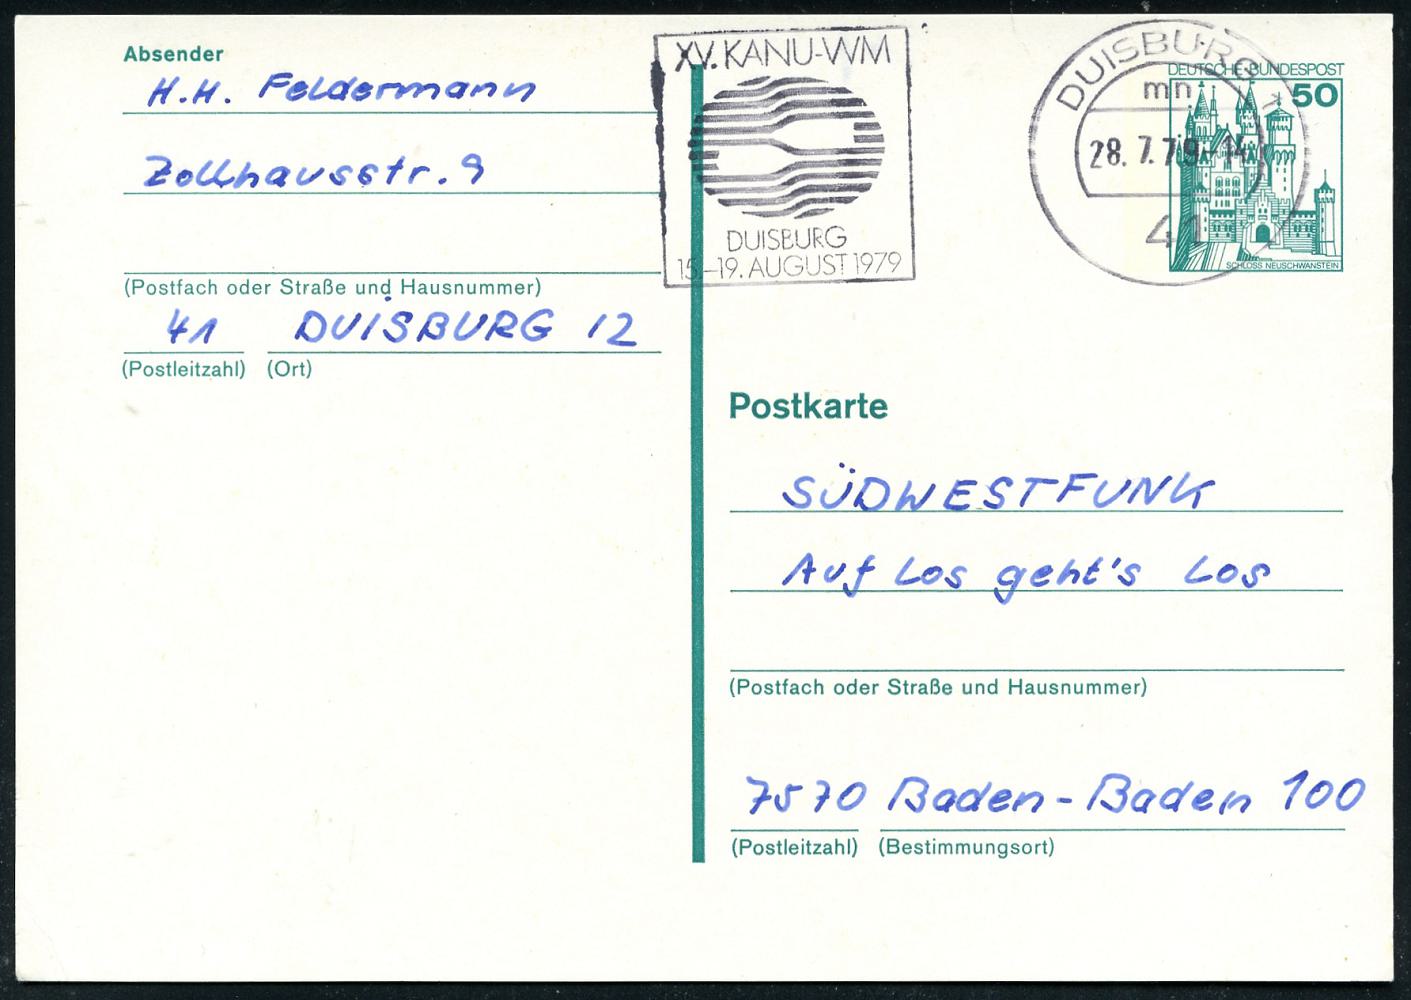 Absender
H.H. Feldermann
Zollhausstr. 9
(Postfach oder Straße und Hausnummer)
41 DUISBURG 12
(Postleitzahl) (Ort)
XV. KANU-WM
DUISBURG
15.-19. AUGUST 1979
DUISBURG 1
mn
28. 7. 79-14
41
DEUTSCHE BUNDESPOST
50
SCHLOSS NEUSCHWANSTEIN
Postkarte
SÜDWESTFUNK
Auf Los geht's Los
(Postfach oder Straße und Hausnummer)
7570 Baden-Baden 100
(Postleitzahl) (Bestimmungsort)